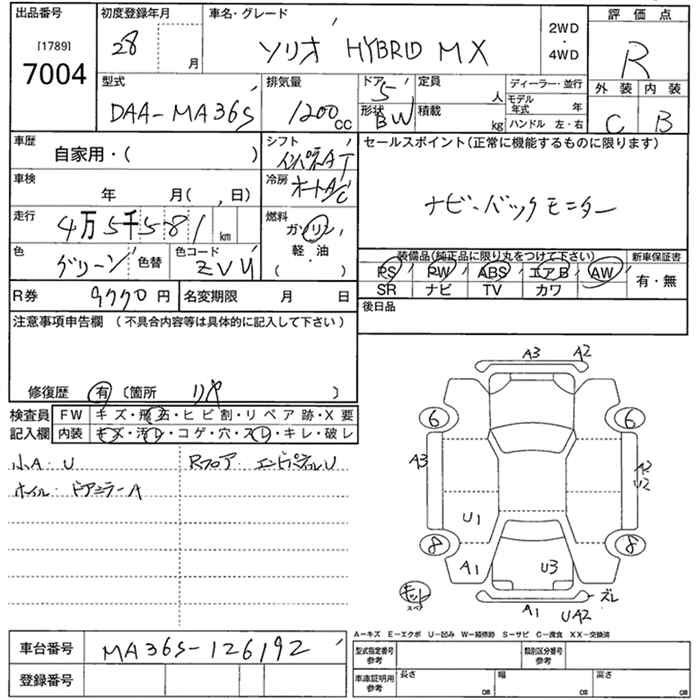 出品番号
[1789]
7004
初度登録年月
28
月
車名・グレード
ソリオ HYBRID MX
2WD
・
4WD
評価点
R
外装 内装
C B
型式
DAA-MA36S
排気量
1200
CC
ドア
5
形状
BW
定員
人
積載
kg
ディーラー・並行
モデル年式 年
ハンドル 左・右
車歴
自家用・( )
シフト
インパネAT
セールスポイント(正常に機能するものに限ります)
ナビ・バックモニター
車検
年 月( , 日)
冷房
オートA/C
走行
4万5千581
km
燃料
ガソリン
軽・油
( )
色
グリーン
色替
色コード
ZVU
装備品(純正品に限り丸をつけて下さい)
PS PW ABS エアB AW
SR ナビ TV カワ
新車保証書
有・無
R券 9770円
名変期限 月 日
後日品
注意事項申告欄 (不具合内容等は具体的に記入して下さい)
修復歴 有 〔箇所 リヤ 〕
検査員
記入欄
FW キズ・飛石・ヒビ割・リペア跡・X要
内装 キズ・汚レ・コゲ・穴・スレ・キレ・破レ
小A・U
Rフロア エンドパネルU
ホイル・ドアミラーA
A3 A2
6 6
A3
A2
U2
U1
8 8
A1 U3
ズレ
A1 UA2
A－キズ E－エクボ U－凹み W－補修跡 S－サビ C－腐食 XX－交換済
車台番号 MA36S-126192
登録番号
型式指定番号
参考
類別区分番号
参考
車庫証明用
参考
長さ cm
幅 cm
高さ cm